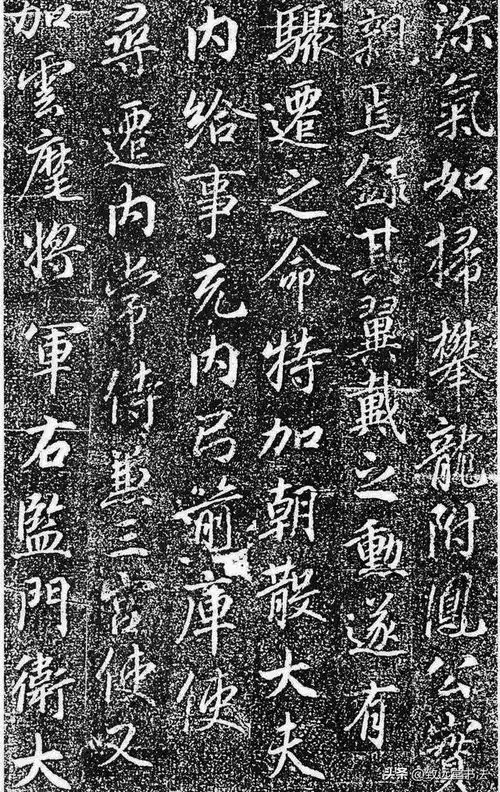 沴氣如掃攀龍附鳳公實
親焉錄其翼戴之勳遂有
驟遷之命特加朝散大夫
内給事充内弓箭庫使
尋遷内常侍兼三宮使又
加雲麾將軍右監門衛大
头条 @致远堂书法